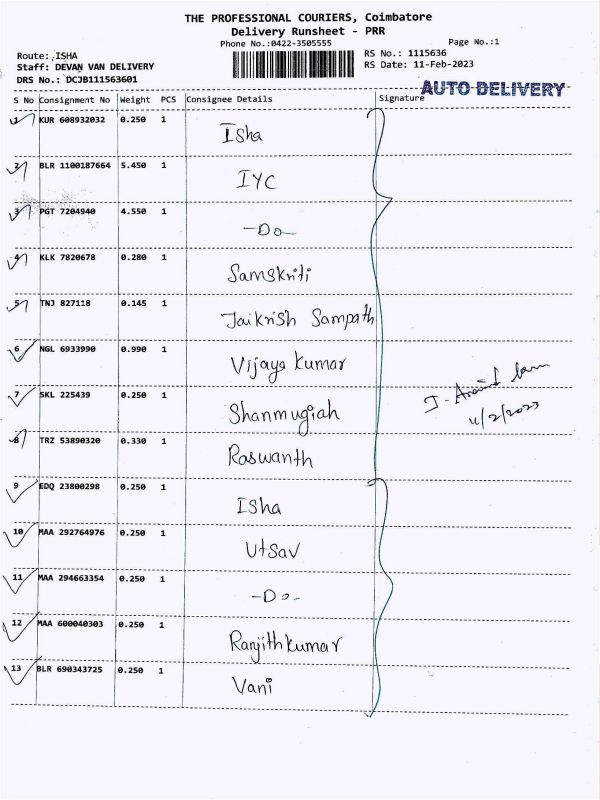 THE PROFESSIONAL COURIERS, Coimbatore
Delivery Runsheet - PRR
Phone No.:0422-3505555 Page No.:1
Route: ISHA RS No.: 1115636
Staff: DEVAN VAN DELIVERY RS Date: 11-Feb-2023
DRS No.: DCJB111563601
AUTO DELIVERY
S No Consignment No Weight PCS Consignee Details Signature
1 KUR 608932032 0.250 1 Isha
2 BLR 1100187664 5.450 1 IYC
3 PGT 7204940 4.550 1 -Do-
4 KLK 7820678 0.280 1 Samskriti
5 TNJ 827118 0.145 1 Jaikrish Sampath
6 NGL 6933990 0.990 1 Vijaya Kumar
7 SKL 225439 0.250 1 Shanmugiah
11/2/2023
8 TRZ 53890320 0.330 1 Raswanth
9 EDQ 23800298 0.250 1 Isha
10 MAA 292764976 0.250 1 Utsav
11 MAA 294663354 0.250 1 -Do-
12 MAA 600040303 0.250 1 Ranjithkumar
13 BLR 690343725 0.250 1 Vani